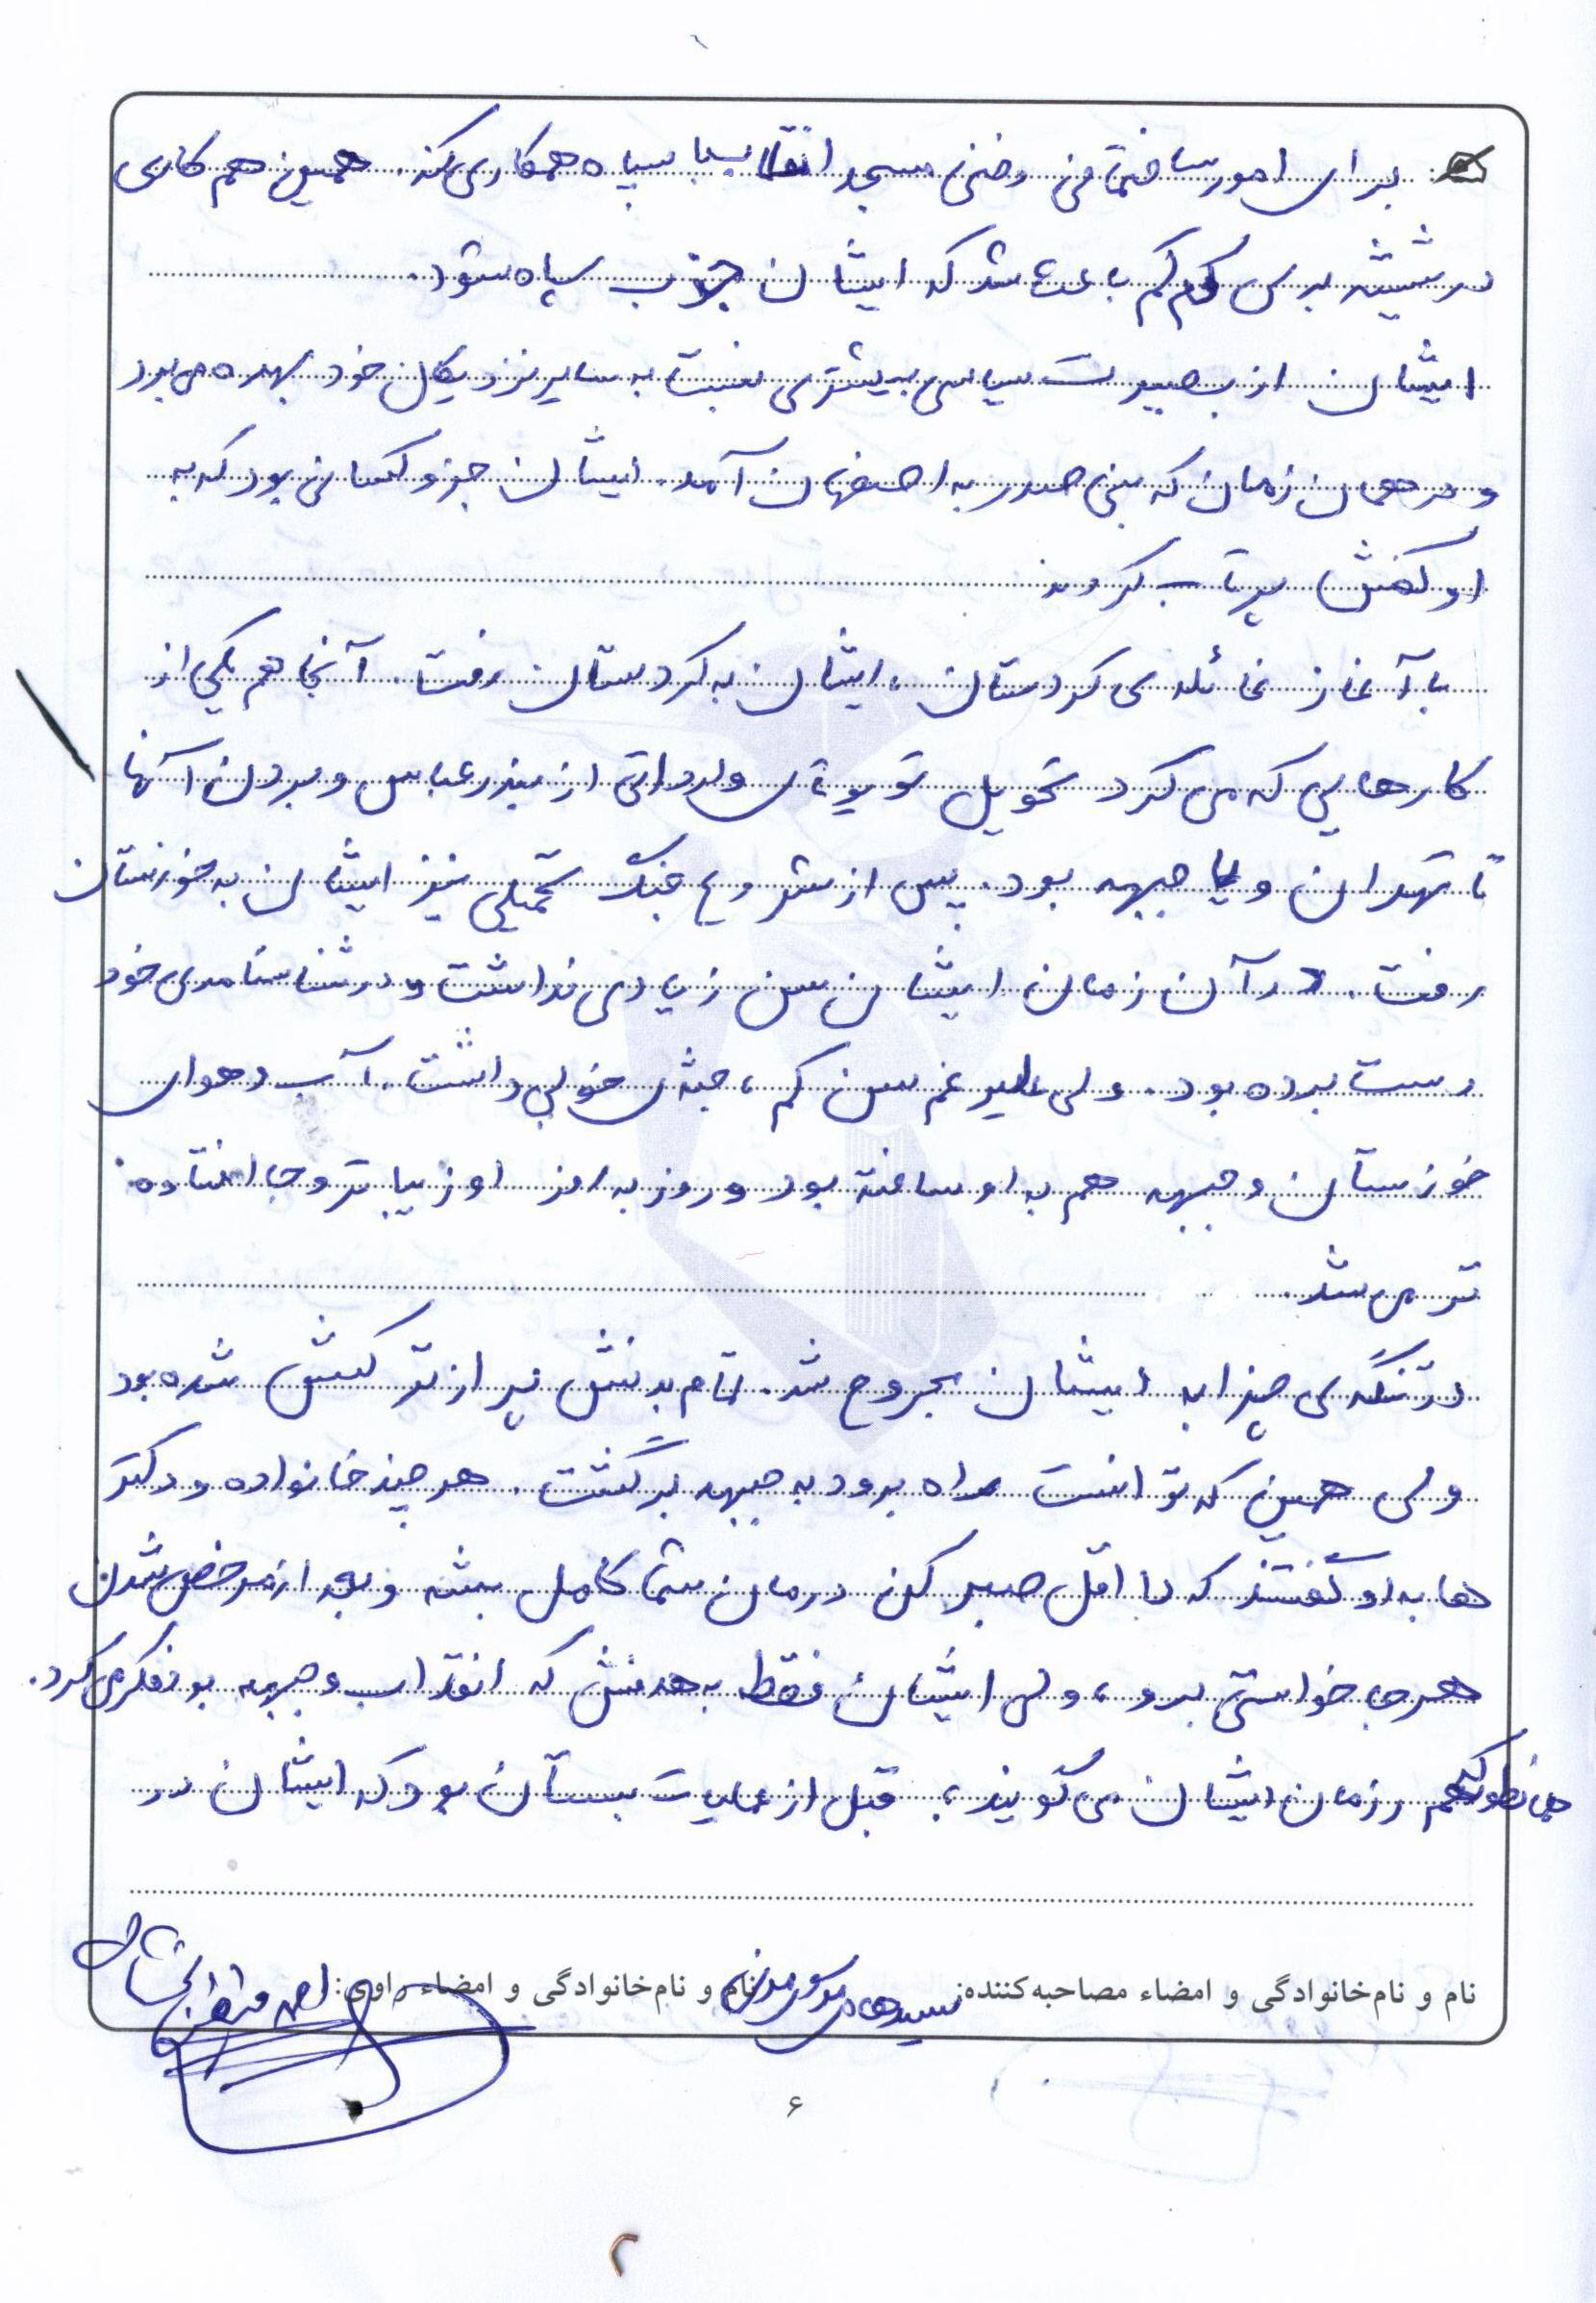 برای امور ساختمانی و فنی مسجد انقلاب با سپاه همکاری کند. همین همکاری
در شیشه بری کم کم باعث شد که ایشان جذب سپاه شود.
ایشان از بصیرت سیاسی بیشتری نسبت به سایر نزدیکان خود بهره می برد
و در همان زمان که بنی صدر به اصفهان آمد. ایشان جزو کسانی بود که به
او کفش پرتاب کردند
با آغاز غائله ی کردستان، ایشان به کردستان رفت. آنجا هم یکی از
کارهایی که می کرد تحویل تویوتای وارداتی از بندرعباس و بردن آنها
تا تهران و یا جبهه بود. پس از شروع جنگ تحمیلی نیز ایشان به خوزستان
رفت. در آن زمان ایشان سن زیادی نداشت و در شناسنامه ی خود
دست برده بود. ولی علیرغم سن کم، جثه ی خوبی داشت. آب و هوای
خوزستان و جبهه هم به او ساخته بود و روز به روز او زیباتر و جا افتاده
تر می شد.
در تنگه ی چزابه ایشان مجروح شد. تمام بدنش پر از ترکش شده بود
ولی همین که توانست راه برود به جبهه برگشت. هر چند خانواده و دکتر
ها به او گفتند که لااقل صبر کن درمان شما کامل بشه و بعد از مرخص شدن
هر جا خواستی برو، ولی ایشان فقط به هدفش که انقلاب و جبهه بود فکر می کرد.
همانطور که همرزمان ایشان می گویند، قبل از عملیات بستان بود که ایشان در
نام و نام‌خانوادگی و امضاء مصاحبه‌کننده: نام و نام‌خانوادگی و امضاء راوی:
۶
۲